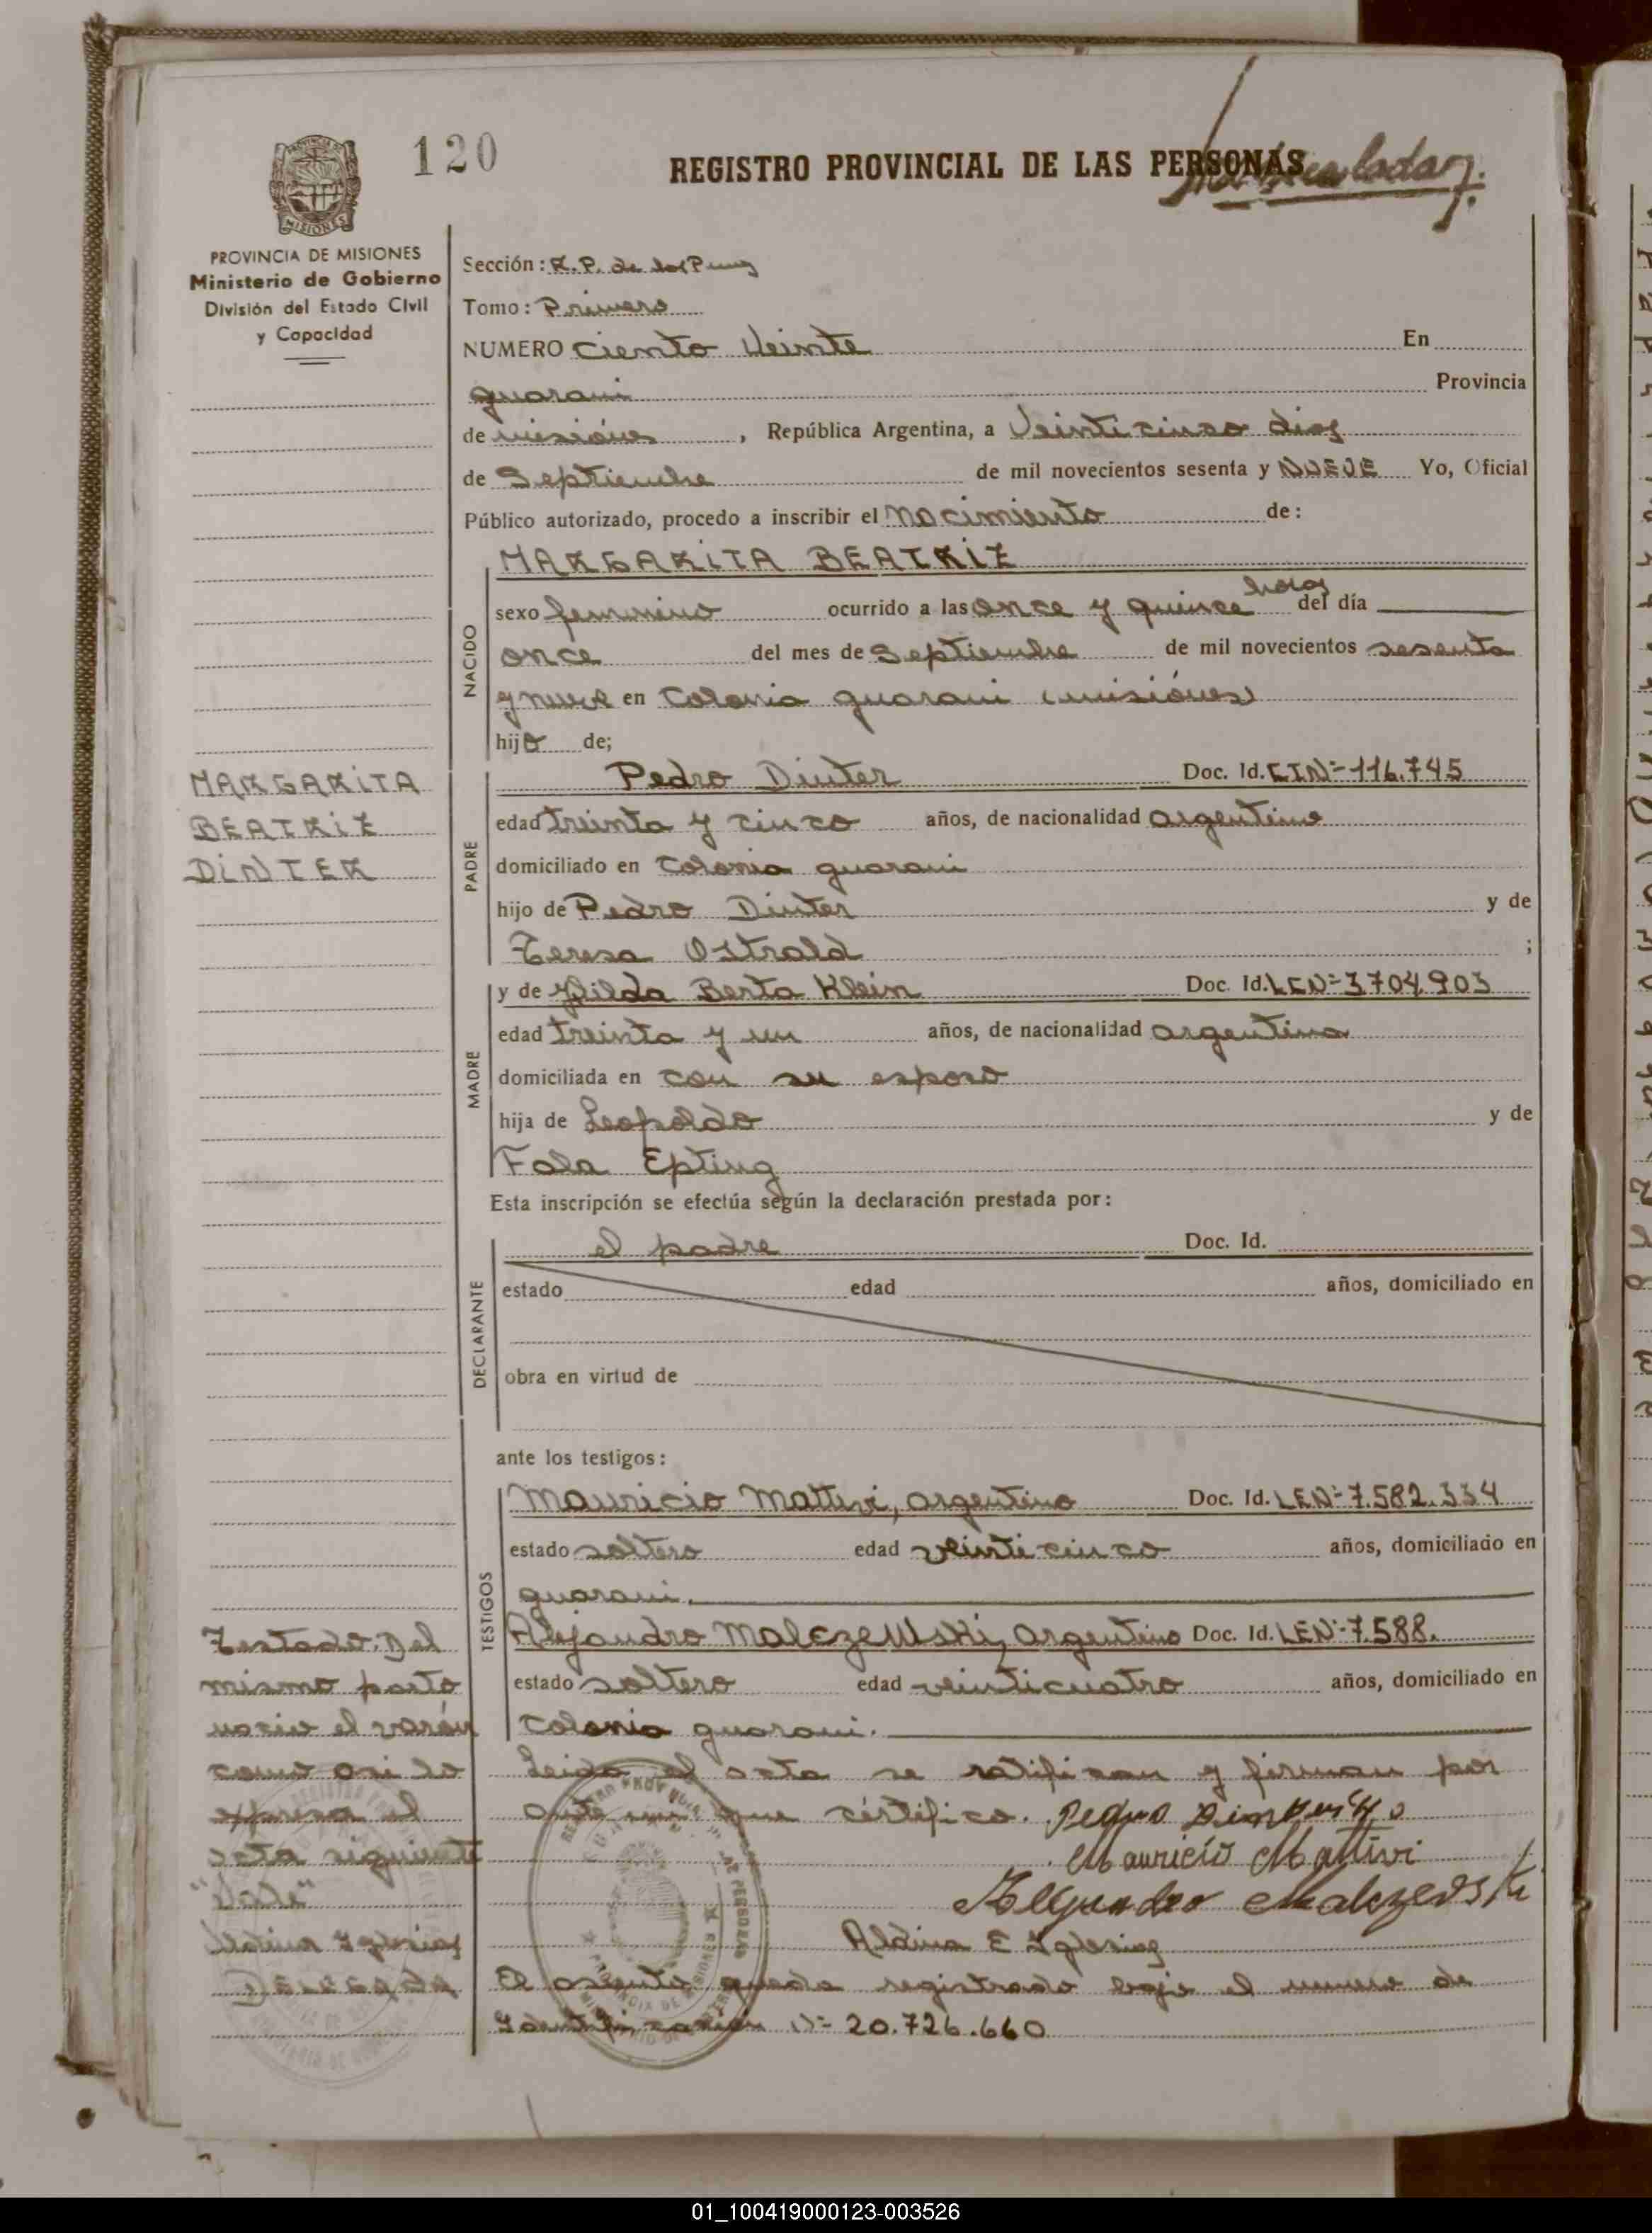 120
REGISTRO PROVINCIAL DE LAS PERSONAS
PROVINCIA DE MISIONES
MISIONES
PROVINCIA DE MISIONES
Ministerio de Gobierno
División del Estado Civil
y Capacidad
Sección: R. P. de las
Tomo: Primero
NUMERO Ciento Veinte En
guarani Provincia
de misiónes, República Argentina, a Veinticinco dias
de Septiembre de mil novecientos sesenta y NUEVE Yo, Oficial
Público autorizado, procedo a inscribir el Nacimiento de:
NACIDO
MARGARITA BEATRIZ
sexo femenino ocurrido a las once y quince horas del día
once del mes de Septiembre de mil novecientos sesenta
y nueve en Colonia guarani (misiónes)
hijo de;
MARGARITA
BEATRIZ
DINTER
PADRE
Pedro Dinter Doc. Id. CIN=116.745
edad treinta y cinco años, de nacionalidad argentino
domiciliado en Colonia guarani
hijo de Pedro Dinter y de
Teresa Ostrald ;
MADRE
y de Hilda Berta Klein Doc. Id. LCN=3704.903
edad treinta y un años, de nacionalidad argentina
domiciliada en con su esposo
hija de Leopoldo y de
Fola Epting
Esta inscripción se efectúa según la declaración prestada por:
DECLARANTE
el padre Doc. Id.
estado edad años, domiciliado en
obra en virtud de
ante los testigos:
TESTIGOS
Mauricio Mattivi, argentino Doc. Id. LEN=7.582.334
estado soltero edad veinticinco años, domiciliado en
guarani.
Alejandro Malczewski, argentino Doc. Id. LEN=7.588.
estado soltero edad veinticuatro años, domiciliado en
Colonia guarani.
Leida el acta se ratifican y firman por
ante mi que certifico. Pedro Dinter
Mauricio Mattivi
Alejandro Malczewski
Aldina E Iglesias
El asiento queda registrado bajo el numero de
Identificación N= 20.726.660
Testado: Del
mismo parto
nacio el varón
como asi lo
expresa el
acta siguiente
"Vale"
Aldina Iglesias
Delegada
01_100419000123-003526